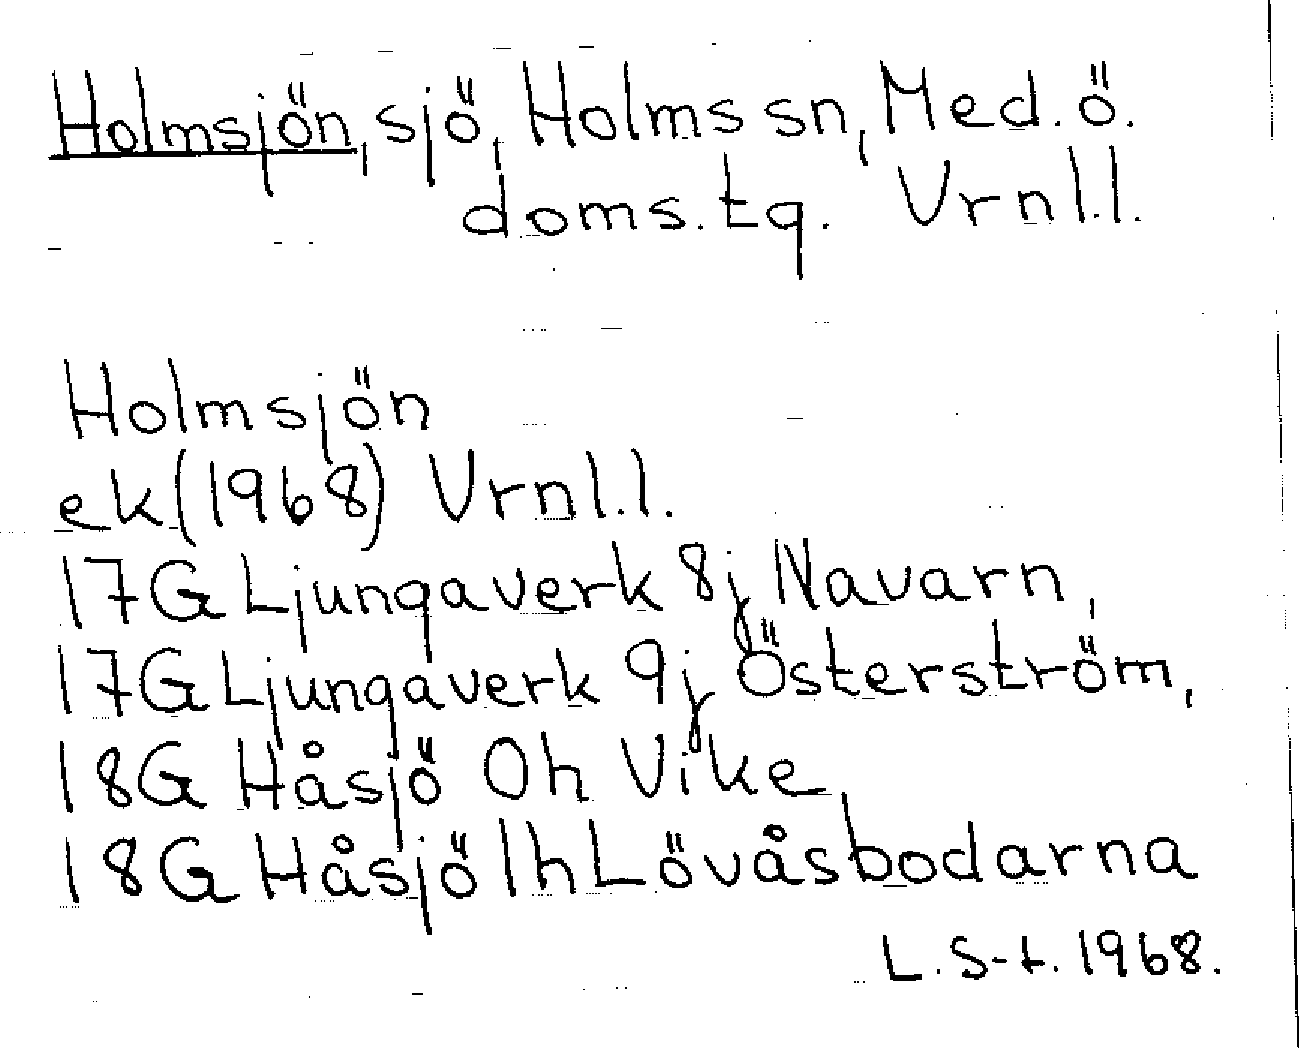 Holmsjön, sjö, Holms sn, Med. ö.
doms. tg. Vrnl.l.
Holmsjön
ek (1968) Vrnl.l.
17G Ljungaverk 8j Navarn,
17G Ljungaverk 9j Österström,
18G Håsjö 0h Vike,
18G Håsjö 1h Lövåsbodarna
L. S-t. 1968.